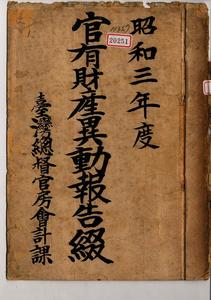 昭和三年度
20251
官有財產異動報告綴
臺灣總督官房會計課